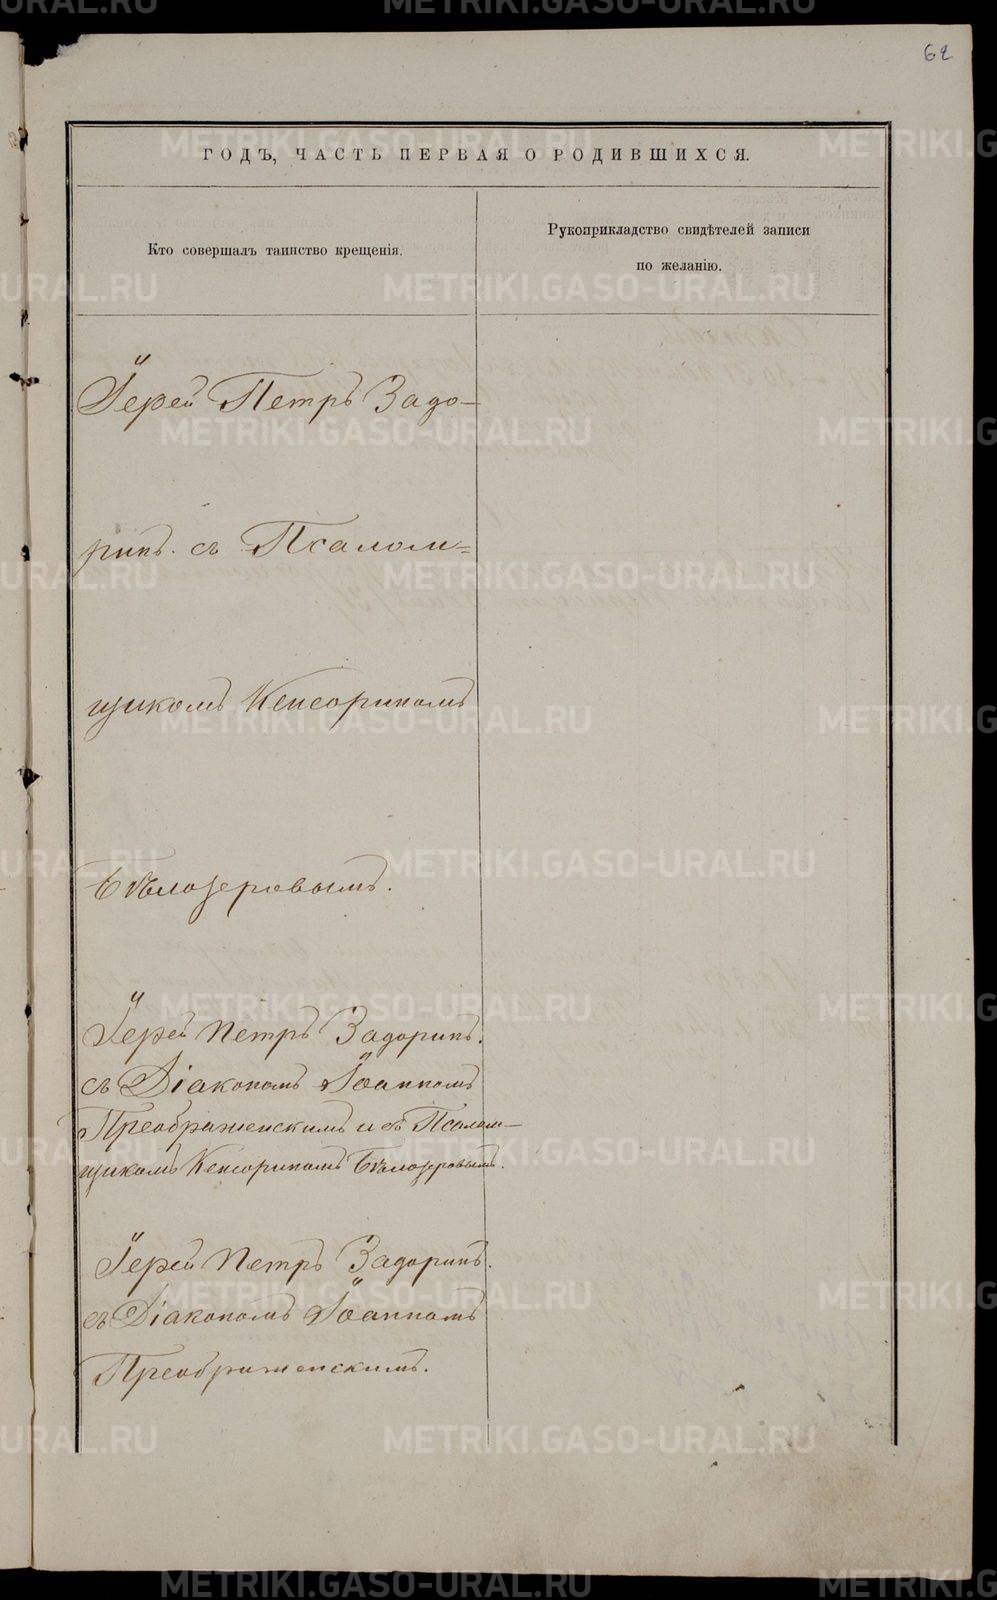 62
ГОДЪ, ЧАСТЬ ПЕРВАЯ О РОДИВШИХСЯ.
Кто совершалъ таинство крещенія.
Рукоприкладство свидѣтелей записи
по желанію.
Іерей Петръ Задо-
ринъ. съ Псалом=
щикомъ Кенсориномъ
Бѣлозеровымъ.
Іерей Петръ Задоринъ.
съ Діакономъ Іоанномъ
Преображенскимъ и съ Псалом-
щикомъ Кенсориномъ Бѣлозеровымъ.
Іерей Петръ Задоринъ.
съ Діакономъ Іоанномъ
Преображенскимъ.
METRIKI.GASO-URAL.RU